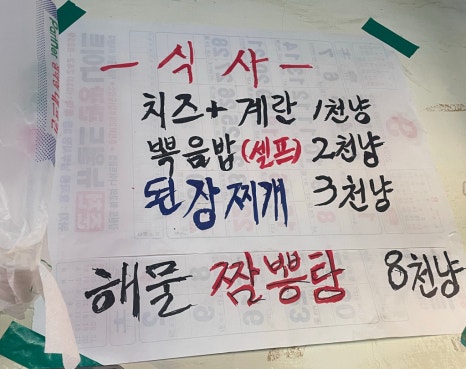 - 식사 -
치즈+계란 1천냥
뽂음밥(셀프) 2천냥
된장찌개 3천냥
해물 짬뽕탕 8천냥